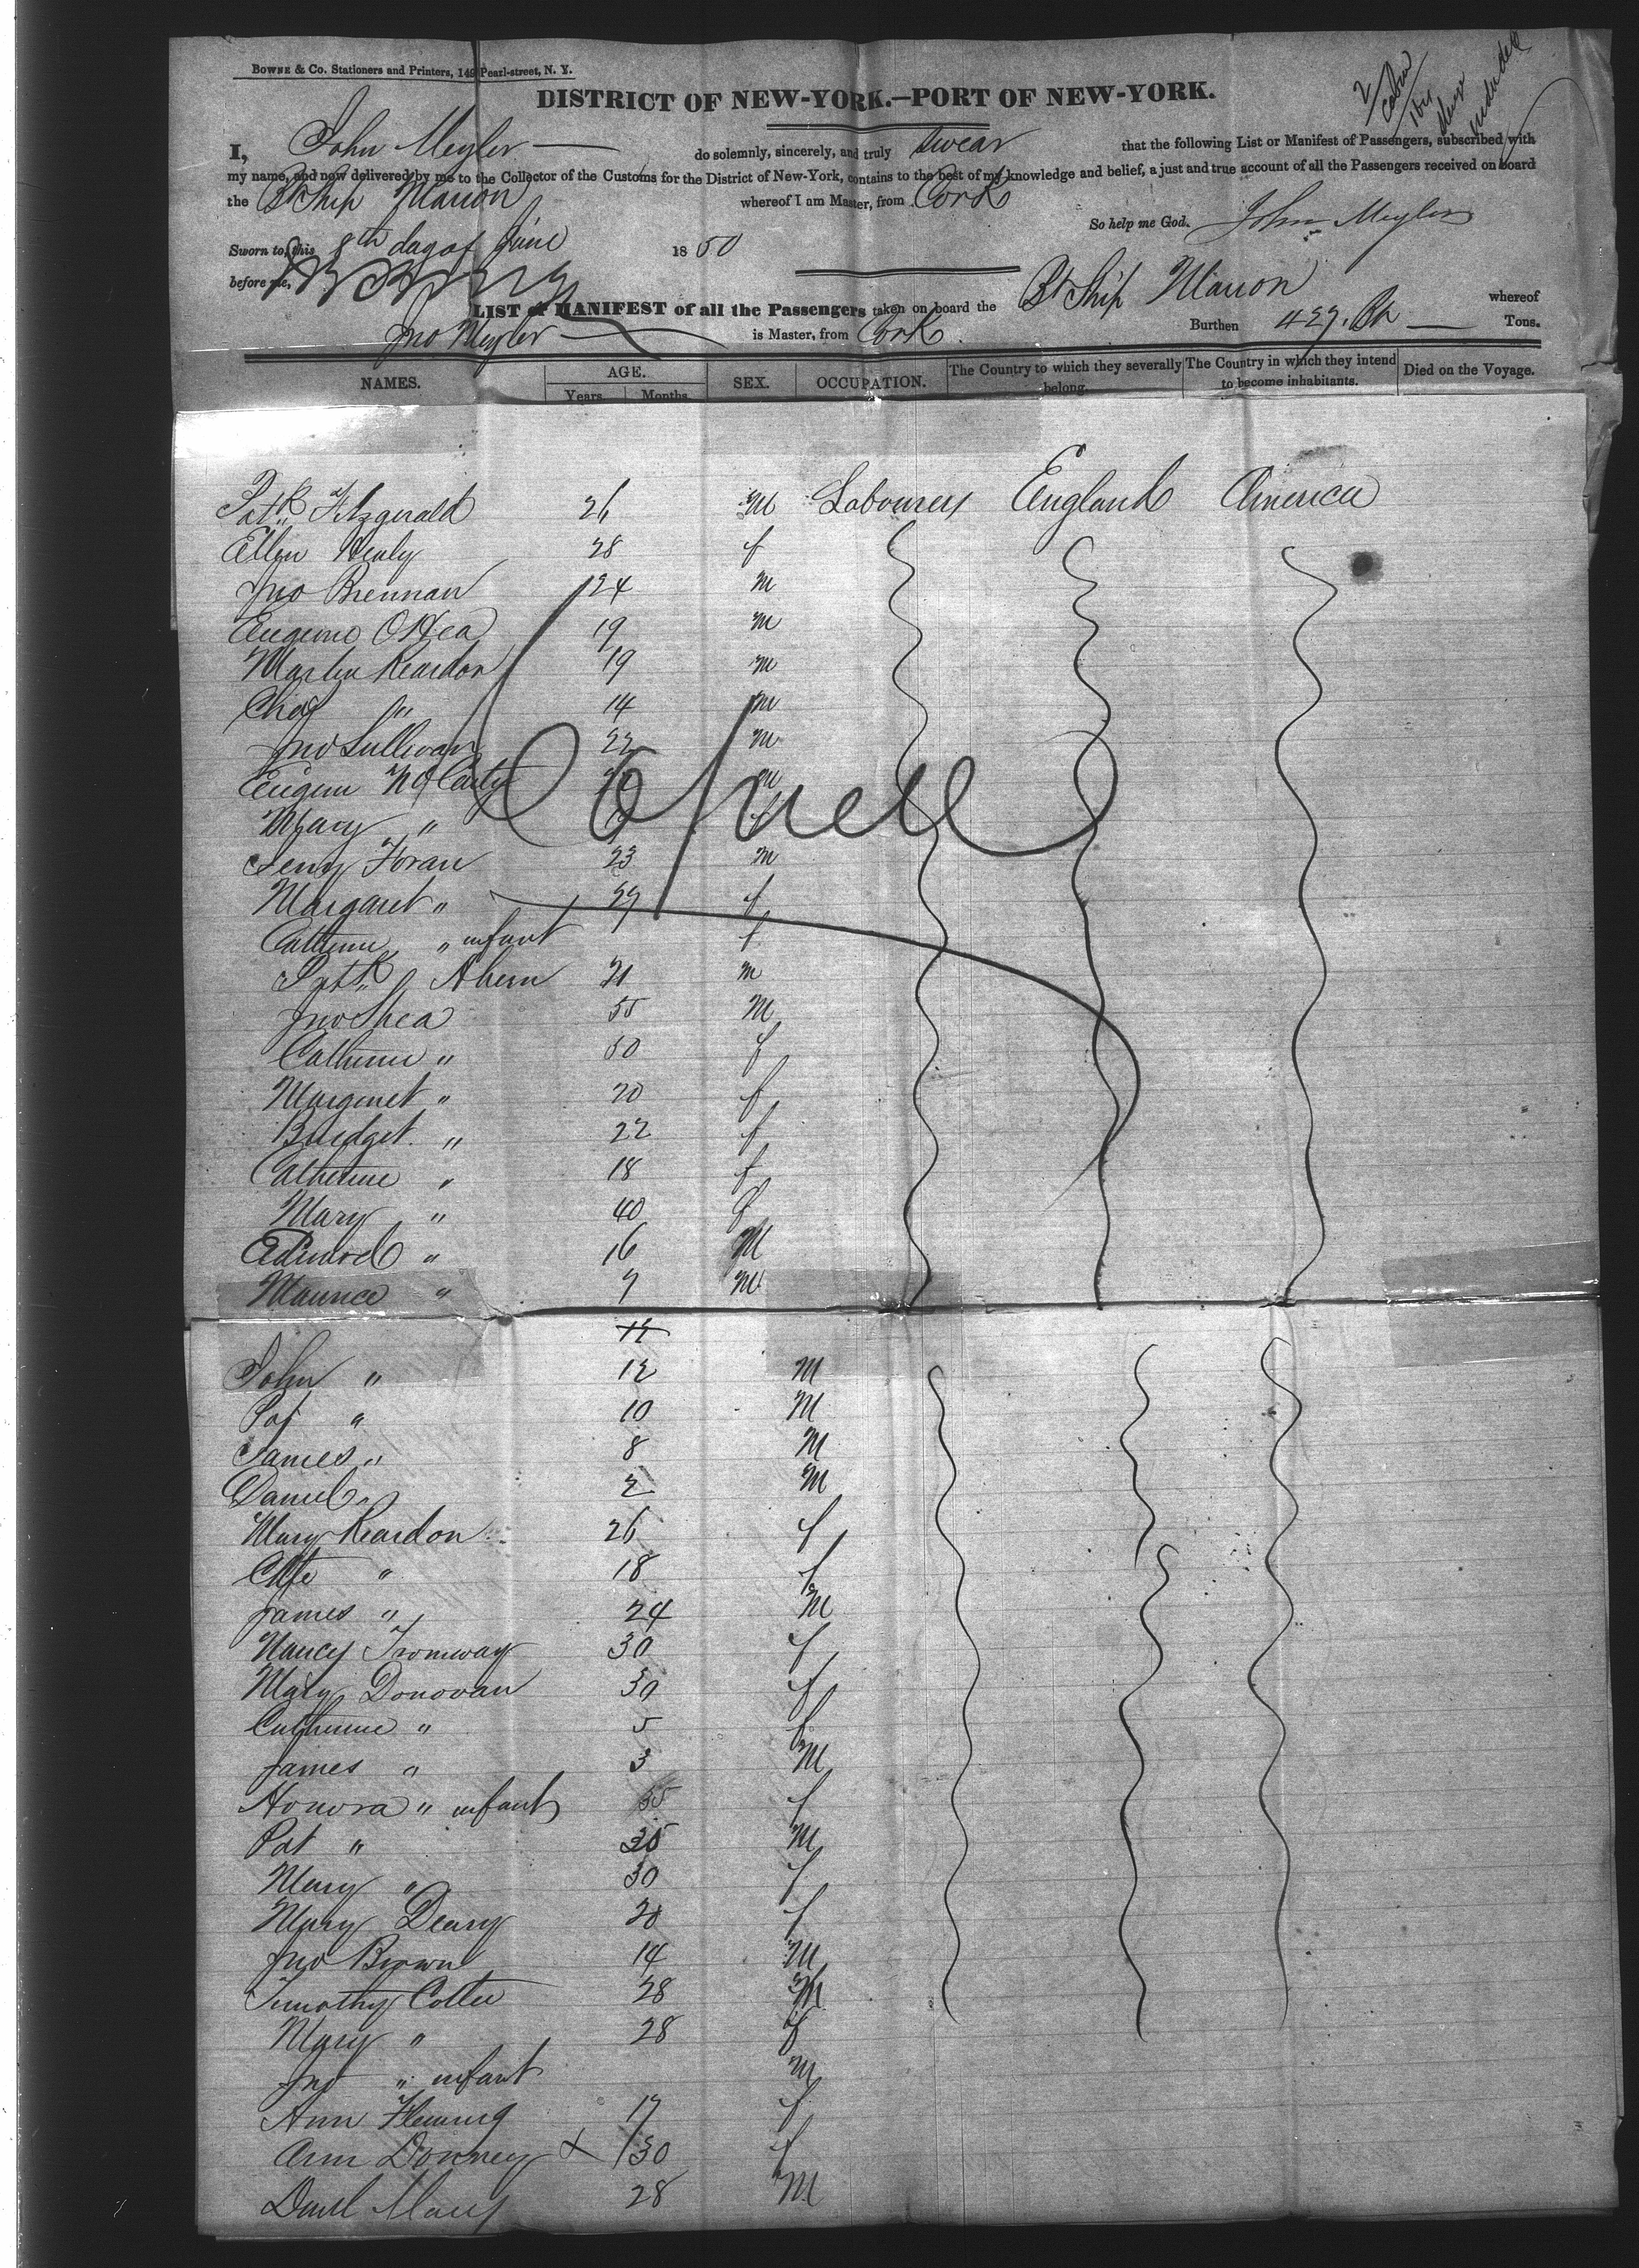 BOWNE & Co. Stationers and Printers, 149 Pearl-street, N. Y.
DISTRICT OF NEW-YORK.—PORT OF NEW-YORK.
I, John Meyler do solemnly, sincerely, and truly swear that the following List or Manifest of Passengers, subscribed with
my name, and now delivered by me to the Collector of the Customs for the District of New-York, contains to the best of my knowledge and belief, a just and true account of all the Passengers received on board
the Bt Ship Marion whereof I am Master, from Cork
So help me God. John Meyler
Sworn to, this 8th day of June 1850
before me,
LIST or MANIFEST of all the Passengers taken on board the Bt Ship Marion whereof
Jno Meyler is Master, from Cork Burthen 427 Tons.
NAMES. AGE. SEX. OCCUPATION. The Country to which they severally belong. The Country in which they intend to become inhabitants. Died on the Voyage.
Years Months
Patk Fitzgerald 26 M Labourers England America
Ellen Healy 28 f
Jno Brennan 24 M
Eugene O'Hea 19 M
Martin Reardon 19 M
Chas " 14 M
Jno Sullivan 22 M
Eugene McCarty M
Mary " f
Jerry Foran 23 M
Margaret " 27 f
Catherine " infant f
Patk Ahern 21 M
Jno Shea 55 M
Catherine " 50 f
Margaret " 20 f
Bridget " 22 f
Catherine " 18 f
Mary " 40 f
Edward " 16 M
Maurice " 7 M
John " 12 M
Pat " 10 M
James " 8 M
Daniel " 2 M
Mary Reardon 26 f
" 18 f
James " 24 M
Nancy 30 f
Mary Donovan 30 f
Catherine " 5 f
James " 3 M
Honora " infant f
Pat " 35 M
Mary " 30 f
Mary Deasy 20 f
Jno Brown 14 M
Timothy Cotter 28 M
Mary " 28 f
Jno " infant M
Ann Fleming 17 f
Ann Downey x 30 f
28 M